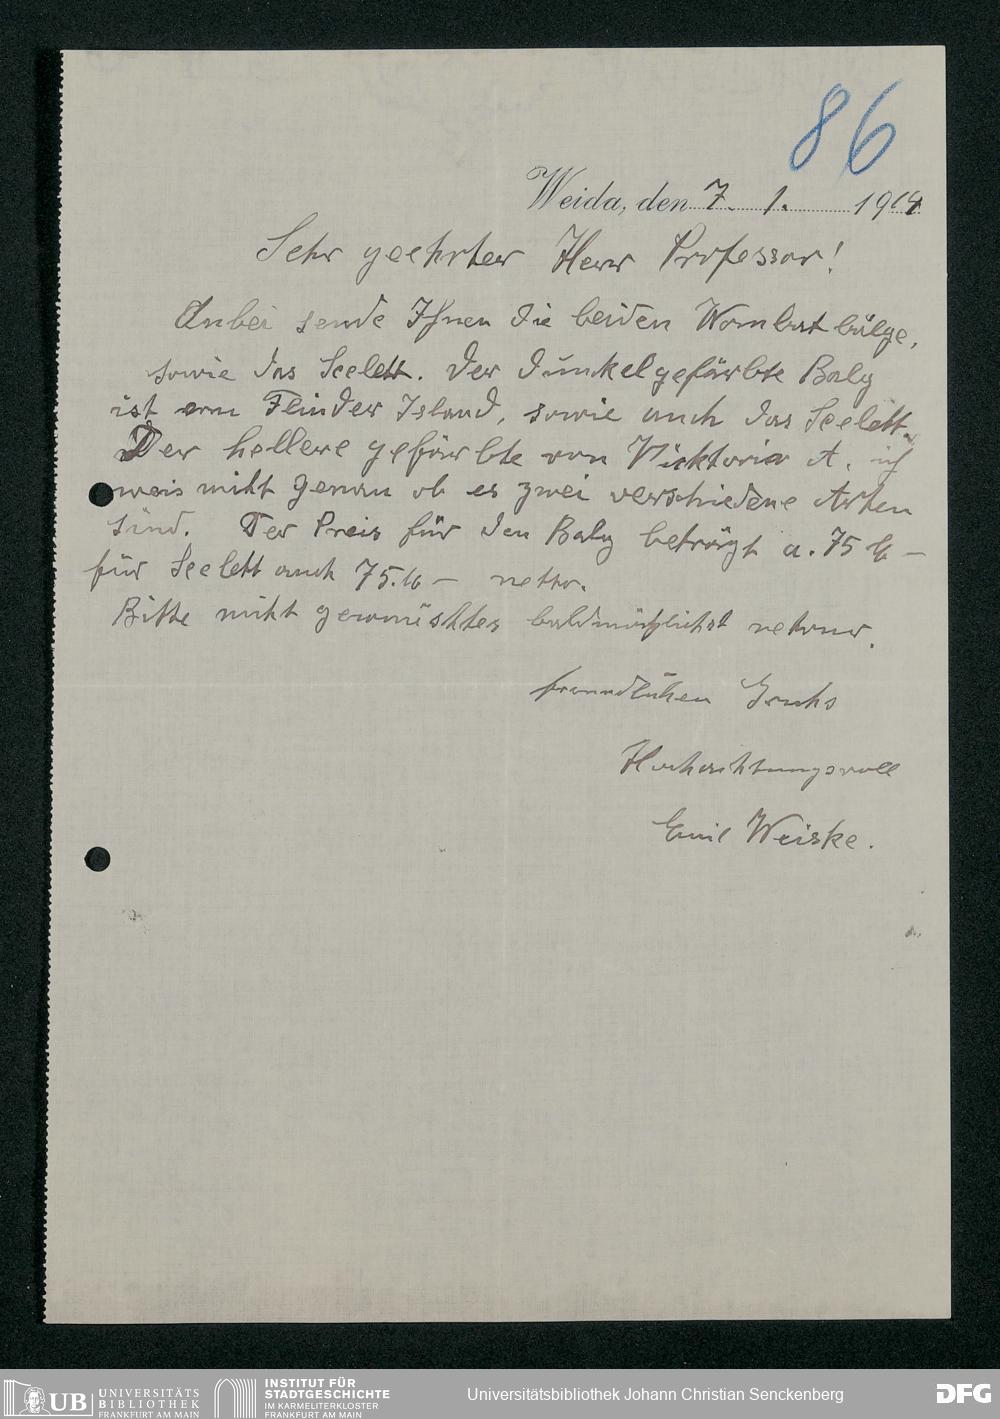 86
Weida, den 7. 1. 1914
Sehr geehrter Herr Professor!
Anbei sende Ihnen die beiden Wombat bälge,
sowie das Seelett. Der dunckel gefärbte Balg
ist von Flinder Island, sowie auch das Seelett.
Der hellere gefärbte von Vicktoria A. ich
weis nicht genau ob es zwei verschiedene Arten
sind. Der Preis für den Balg beträgt a. 75 M –
für Seelett auch 75. M – netto.
Bitte nicht gewünschtes baldmöglichst retour.
freundlichen Gruhs
Hochachtungsvoll
Emil Weiske.
UB UNIVERSITÄTS
BIBLIOTHEK
FRANKFURT AM MAIN
INSTITUT FÜR
STADTGESCHICHTE
IM KARMELITERKLOSTER
FRANKFURT AM MAIN
Universitätsbibliothek Johann Christian Senckenberg
DFG